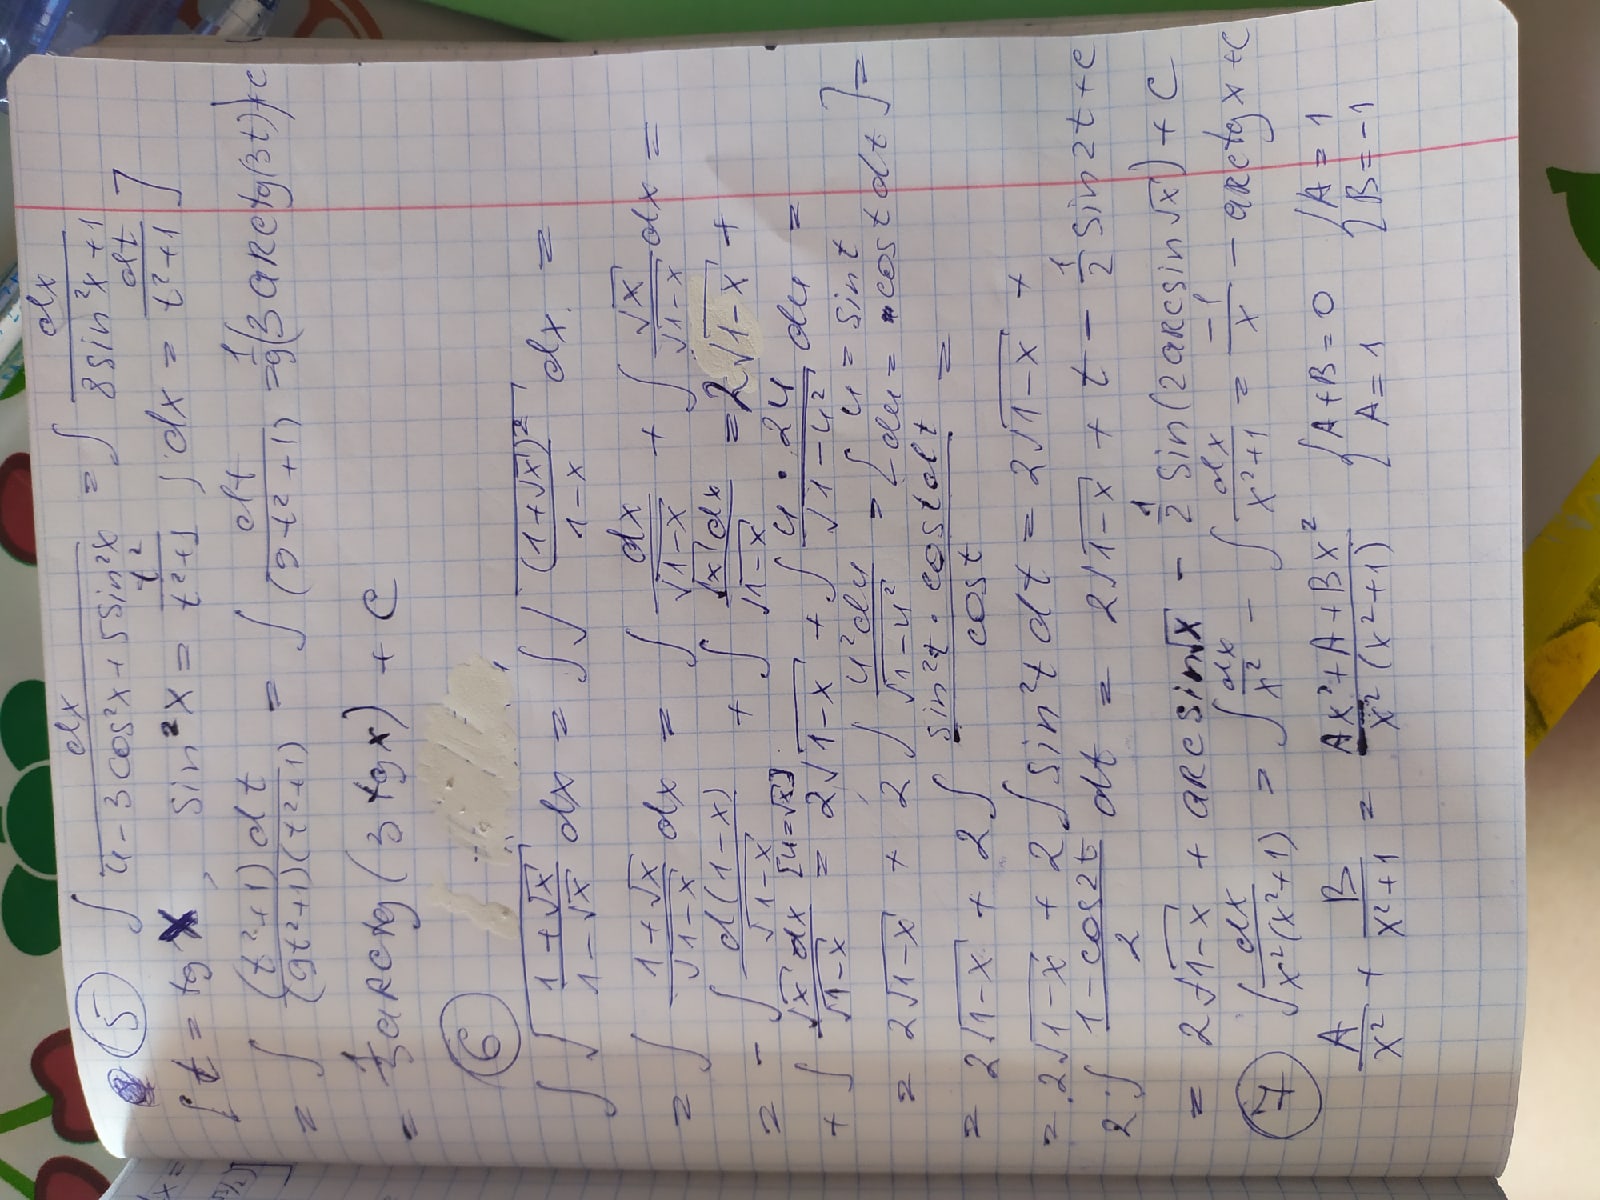 5 ∫ dx / (4 - 3cos²x + 5sin²x) = ∫ dx / (8sin²x + 1)
[t = tg x, sin²x = t²/(t²+1) ; dx = dt/(t²+1)]
= ∫ (t²+1)dt / ((9t²+1)(t²+1)) = ∫ dt / (9t²+1) = 1/9(3 arctg(3t)) + C
= 1/3 arctg(3 tg x) + C
6
∫ √((1+√x)/(1-√x)) dx = ∫ √((1+√x)²/(1-x)) dx =
= ∫ (1+√x)/√(1-x) dx = ∫ dx/√(1-x) + ∫ √x/√(1-x) dx =
= - ∫ d(1-x)/√(1-x) + ∫ √x dx/√(1-x) = 2√(1-x) +
+ ∫ √x dx/√(1-x) [u=√x] = 2√(1-x) + ∫ u · 2u/√(1-u²) du =
= 2√(1-x) + 2 ∫ u²du/√(1-u²) = [u = sin t du = cos t dt] =
= 2√(1-x) + 2 ∫ sin²t · cos t dt / cos t =
= 2√(1-x) + 2 ∫ sin²t dt = 2√(1-x) +
2 ∫ (1-cos2t)/2 dt = 2√(1-x) + t - 1/2 sin2t + c
= 2√(1-x) + arcsin√x - 1/2 sin(2arcsin√x) + C
7 ∫ dx/(x²(x²+1)) = ∫ dx/x² - ∫ dx/(x²+1) = -1/x - arctg x + C
A/x² + B/(x²+1) = (Ax²+A+Bx²)/(x²(x²+1)) {A+B=0 A=1 {A=1 B=-1